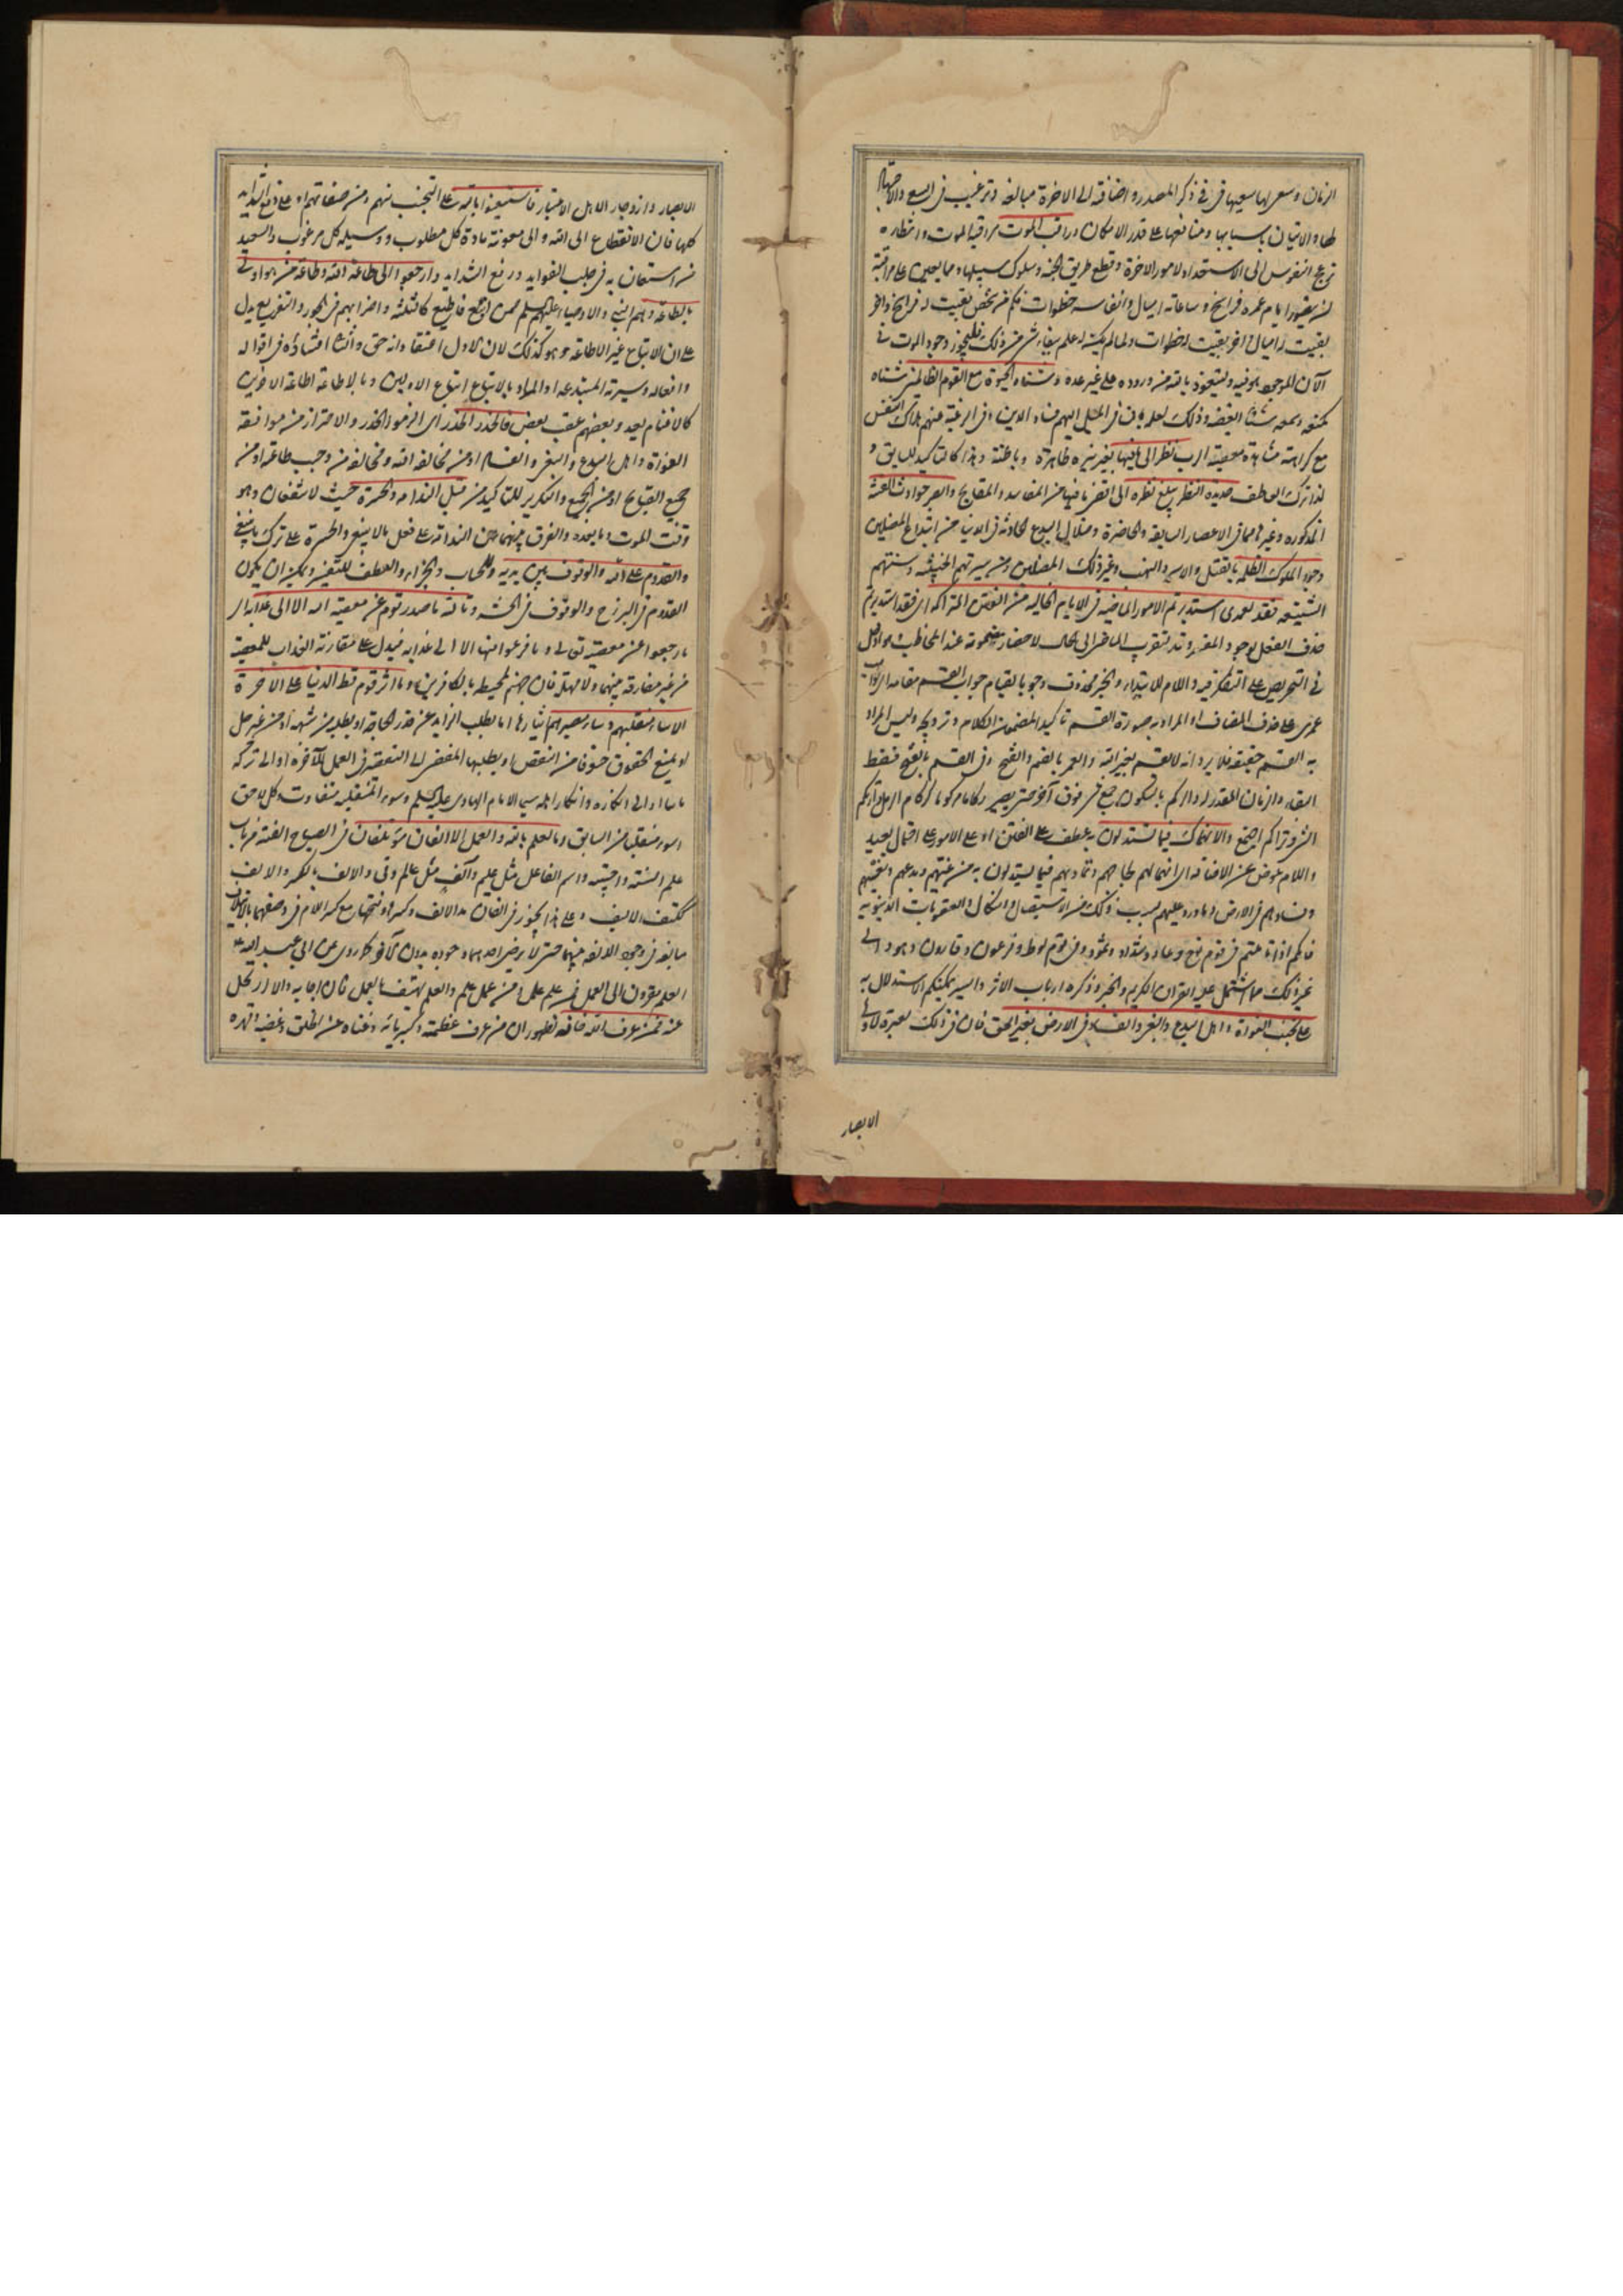 الزمان وسعى لها سعيها فى ذكر المصدر واضافته الى الاخرة مبالغة وترغيب فى السعى والاجتهاد
لها والاتيان باسبابها ومنافعها على قدر الامكان وراقب الموت مراقبة الموت وانتظاره
تزعج النفوس الى الاستعداد لامور الاخرة وقطع طريق الجنة وسلوك سبيلها ومما يعين على مراقبة
بقيت اميال اخر بقيت له خطوات ولما لم يكن له علم ببقاء شىء من ذلك فليجوز وجود الموت فى
الآن الموجود هو فيه وليتعوذ بالله من وروده على غير عدة وشناه الحيوة مع القوم الظالمين شناه
كمنعه وسمعه شناء ابغضه وذلك لعلمه بان فى الميل اليهم فساد الدين وفى الرغبة عنهم هلاك النفس
مع كراهة مشاهدة معصية الرب نظر الى ما فيها بعين نيرة ظاهرة وباطنة وهذا كالتاكيد للسابق و
لذا ترك العاطف حديدة النظر يبلغ نظره الى اقصى ما فيها من المفاسد والمقابح وابصر حوادث الفتن
المذكورة وغيرها مما فى الاعصار السابقة والحاضرة وضلال البدع الحادثة فى الدنيا من ابتداع المضلين
وجور الملوك الظلمة بالقتل والاسر والنهب وغير ذلك المضلين ومن سيرتهم الخبيثة وسنتهم
الشنيعة فقد لعمرى استدبرتم الامور الماضية فى الايام الخالية من الفتن المتراكمة اى فقد استدبرتم
حذف الفعل لوجود المفسر وقد لتقريب الماضى الى الحال لاحضار مضمونه عند المخاطب هو ادخل
فى التحريص على التفكر فيه واللام للابتداء والخبر محذوف وجوبا لقيام جواب القسم مقامه اى لواهب
عمرى على حذف المضاف او المراد به صورة القسم تاكيدا لمضمون الكلام وترويجه وليس المراد
به القسم حقيقة فلا يرد انه لا قسم بغير الله والعمر بالضم والفتح وفى القسم بالفتح فقط
البقاء والزمان المقدر له والركم بالسكون جمع شىء فوق آخر حتى يصير ركاما مركوما كركام الرمل وتراكم
الشىء وتراكم اجتمع والانهماك فيما تستدلون به عطف على الفتن او على الامور على احتمال بعيد
واللام عوض عن الاضافة اى انهماكهم لجاجهم وتماديهم فيما يستدلون به من غيهم وبدعهم وبغيهم
وفسادهم فى الارض وما ورد عليهم بسبب ذلك من الاستيصال والنكال والعقوبات الدنيوية
فانكم اذا تاملتم فى قوم نوح وعاد وشداد وثمود وفى قوم لوط وفرعون وقارون وهود الى
غير ذلك مما اشتمل عليه القران الكريم والخبر وذكره ارباب الاثر والسير يمكنكم الاستدلال به
على تجنب الغواة واهل البدع والبغى والفساد فى الارض بغير الحق فان فى ذلك لعبرة لاولى
الابصار
الابصار وازدجار لاهل الاختبار فاستعينوا بالله على التجنب منهم ومن صفاتهم او على دفع الشدايد
كلها فان الانقطاع الى الله والى معونته مادة كل مطلوب ووسيلة كل مرغوب والسعيد
من استعان به فى جلب الفوايد ورفع الشدايد وارجعوا الى طاعة الله وطاعة من هو اولى
بالطاعة وهم النبى والاوصياء عليهم السلم ممن اتبع فاطيع كالثلثة واضرابهم فى الجور والتفريع يدل
على ان الاتباع غير الاطاعة وهو كذلك لان الاول اعتقاد انه حق والثانى امتثاله فى اقواله
وافعاله وسيرته المبتدعة او المراد بالاتباع اتباع الاولين وبالاطاعة اطاعة الاخرين
كالاغنام يعدو بعضهم عقب بعض فالحذر الحذر اى الزموا الحذر والاحتراز من موافقة
الغواة واهل البدع والبغى والفساد او من مخالفة الله ومخالفة من وجب طاعته او من
جميع القبايح او من الجميع والتكرير للتاكيد من قبل الندامة والحسرة حيث لا تنفعان وهو
وقت الموت وما بعده والفرق بينهما ان الندامة على فعل ما لا ينبغى والحسرة على ترك ما ينبغى
والقدوم على الله والوقوف بين يديه للحساب والجزاء والعطف للتفسير ويمكن ان يكون
القدوم فى البرزخ والوقوف فى الحشر وتالله ما صدر قوم عن معصية الله الا الى عذابه اى
ما رجعوا عن معصيته تعالى وما فرغوا منها الا الى عذابه فيدل على مقارنة العذاب للمعصية
من غير مفارقة بينهما ولا مهلة فان جهنم لمحيطة بالكافرين وما اثر قوم قط الدنيا على الاخرة
الا ساء منقلبهم وساء مصيرهم ايثارها اما بطلب الزايد عن قدر الحاجة او بطلبه من شبهة او من غير حل
او بمنع الحقوق خوفا من النقص او بطلبها المفضى الى النقص فى العمل للآخرة او الى تركه
وسوء المنقلب متفاوت وكل لاحق
اسوء منقلبا من السابق وما العلم بالله والعمل الا الفان مؤتلفان فى الصحاح الفته من باب
علم انسته واحببته واسم الفاعل مثل عليم وآلف مثل عالم وفى والالف بالكسر والاليف
مبالغة فى وجود الالفة بينهما حتى لا يرضى احدهما وجوده بدون الآخر كما روى عن ابى عبد الله ع
العلم مقرون الى العمل فمن علم عمل ومن عمل علم والعلم يهتف بالعمل فان اجابه والا ارتحل
عنه فمن عرف الله خافه لظهور ان من عرف عظمته وكبريائه وغناه عن الخلق وغضبه وقهره